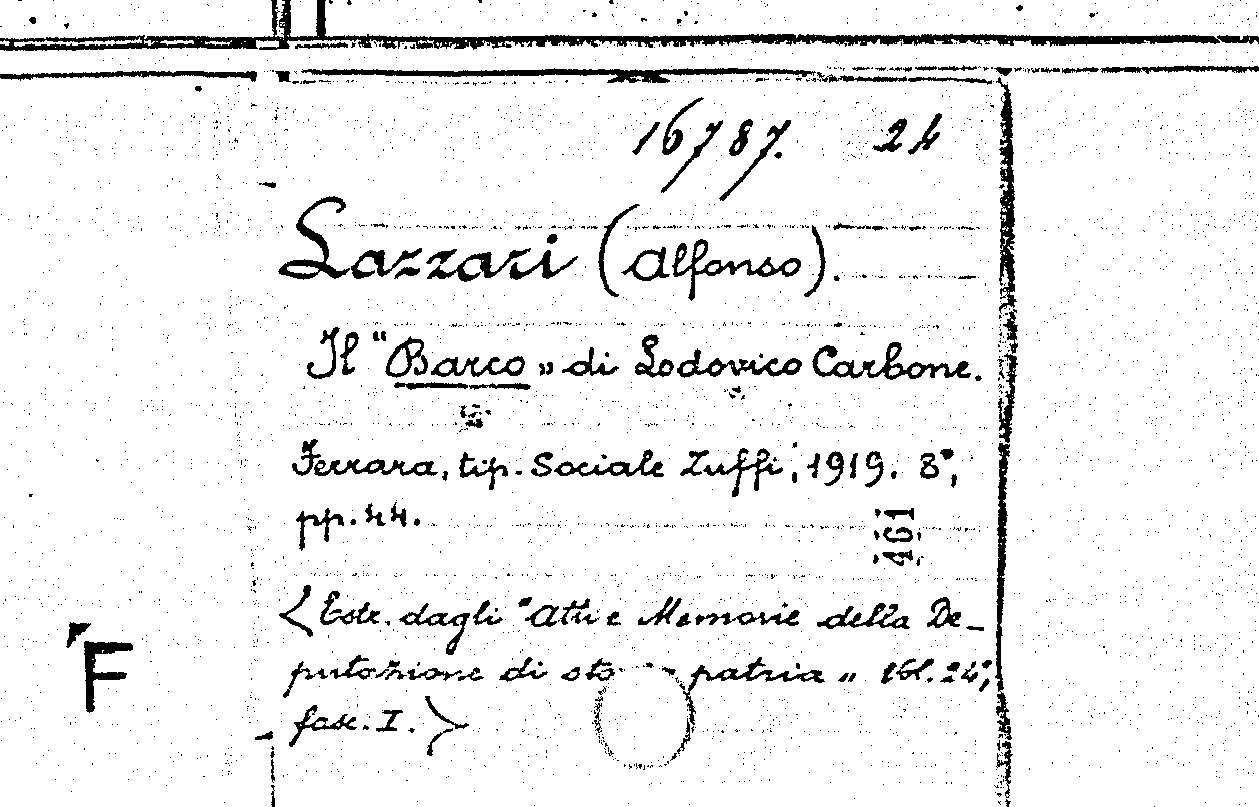 16787. 24
Lazzari (Alfonso).
Il "Barco" di Lodovico Carbone.
Ferrara, tip. Sociale Zuffi, 1919. 8°,
pp. 44.
461
<Estr. dagli "Atti e Memorie della De-
putazione di patria" Vol. 24°,
fasc. I.>
F